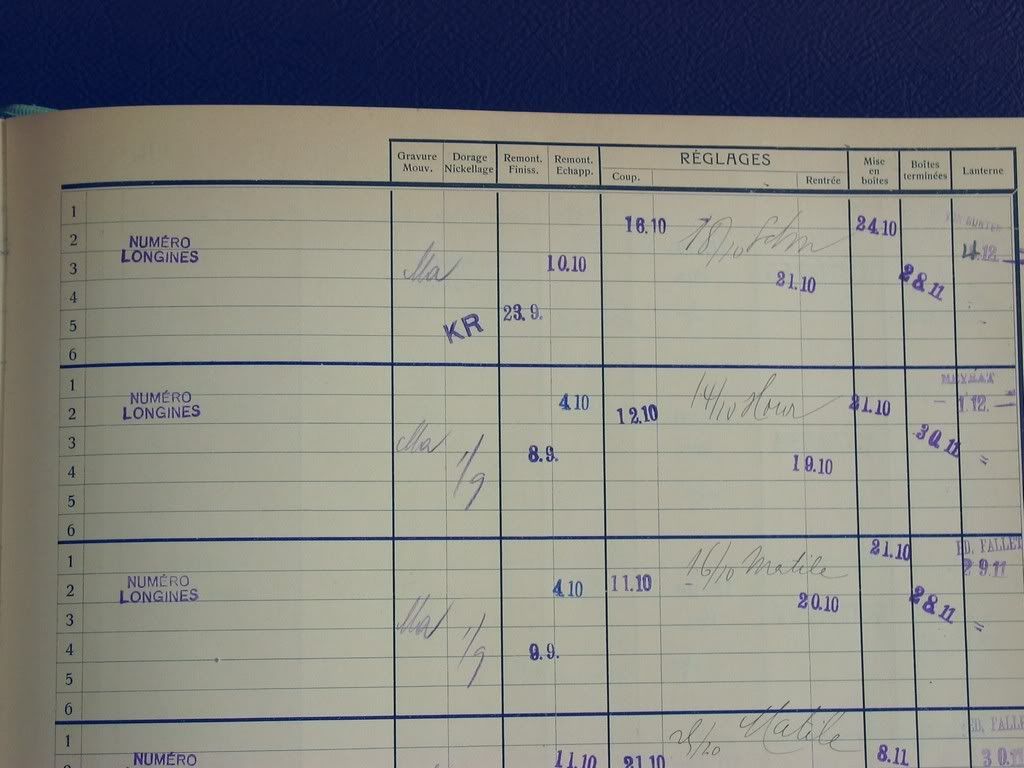 Gravure Mouv. Dorage Nickellage Remont. Finiss. Remont. Echapp. RÉGLAGES Mise en boîtes Boîtes terminées Lanterne
Coup. Rentrée
1
2 16.10 18/10 24.10
NUMÉRO LONGINES
3 Ma 10.10 21.10 4.12
4 28.11
5 KR 23.9.
6
1 MEYRAT
2 NUMÉRO LONGINES 4.10 12.10 14/10 21.10 1.12.
3 Ma 30.11
4 1/9 8.9. 19.10 "
5
6
1 21.10 ED. FALLET
2 NUMÉRO LONGINES 4.10 11.10 16/10 Matile 20.10 29.11
3 Ma 28.11 "
4 1/9 9.9.
5
6
1 Matile ED. FALLET
NUMÉRO 11.10 21.10 8.11